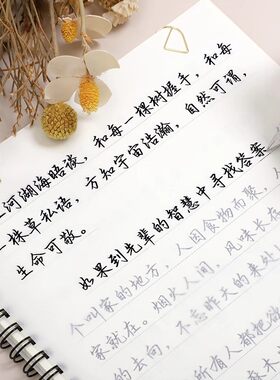 河湖海晤谈，和每一棵树握手，和每
株草私语，方知宇宙浩瀚，自然可谓，
生命可敬。
如果到先辈的智慧中寻找答案
个叫家的地方，人因食物而聚，
家就在。烟火人间，风味长在
的去向，不忘昨天的来处
所有人都把